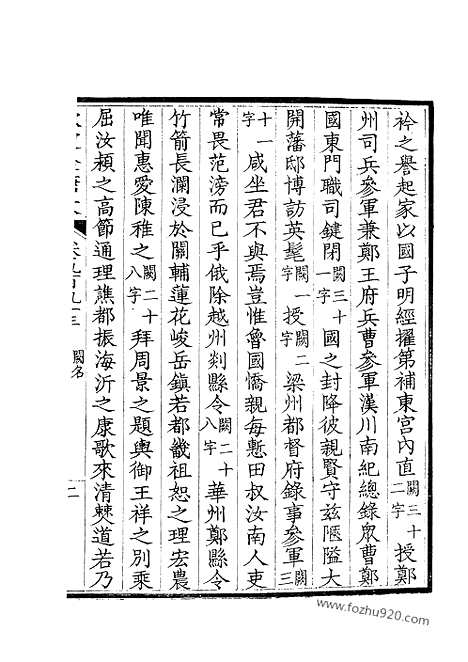 衿之譽起家以國子明經擢第補東宮內直闕三十二字授鄭
州司兵參軍兼鄭王府兵曹參軍漢川南紀總錄眾曹鄭
國東門職司鍵閉闕三十一字國之封降彼親賢守茲隘大
開藩邸博訪英髦闕一字授闕二字梁州都督府錄事參軍闕三
十一字咸坐君不與焉豈惟魯國憍親每慙田叔汝南人吏
常畏范滂而已乎俄除越州剡縣令闕二十八字華州鄭縣令
竹箭長瀾浸於關輔蓮花峻岳鎮若都畿祖恕之理宏農
唯聞惠愛陳稚之闕二十八字拜周景之題輿御王祥之別乘
屈汝潁之高節通理譙都振海沂之康歌來清棘道若乃
欽定全唐文
卷九百九十三
闕名
二
www.fozhu920.com